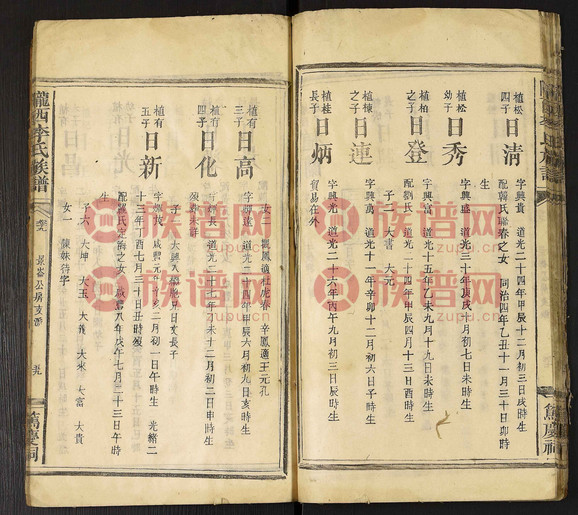 植松
四子
日清
字興貴 道光二十四年甲辰十二月初三日戌時
生
配韓氏瑞春之女 同治四年乙丑十一月三十日卯時
生
植松
幼子
日秀
字興盛 道光三十年庚戌十月初八日未時生
植柏
之子
日登
字興富 道光十五年乙未九月十七日未時生
配劉氏 道光二十四年甲辰四月十三日酉時生
子二 大書 大元
植棟
之子
日連
字興萬 道光十一年辛卯十二月初六日子時生
植桂
長子
日炳
字興光 道光二十六年丙午九月初三日辰時生
貿易在外
女二 觀鳳適杜虎春 辛鳳適王元孔
植有
三子
日高
道光二十四年甲辰六月初九日丑時生
植有
四子
日化
道光二十七年丁未十二月初二日申時生
植有
五子
日新
咸豐元年辛亥二月初一日午時生 光緒二
十三年丁酉七月十三日丑時歿
咸豐八年戊午七月二十三日午時
生
子六 大坤 大玉 大義 大來 大富 大貴
女二 陳妹待字
隴西李氏族譜
景崙公房支譜
篤慶祠
族谱网
zupu.cn